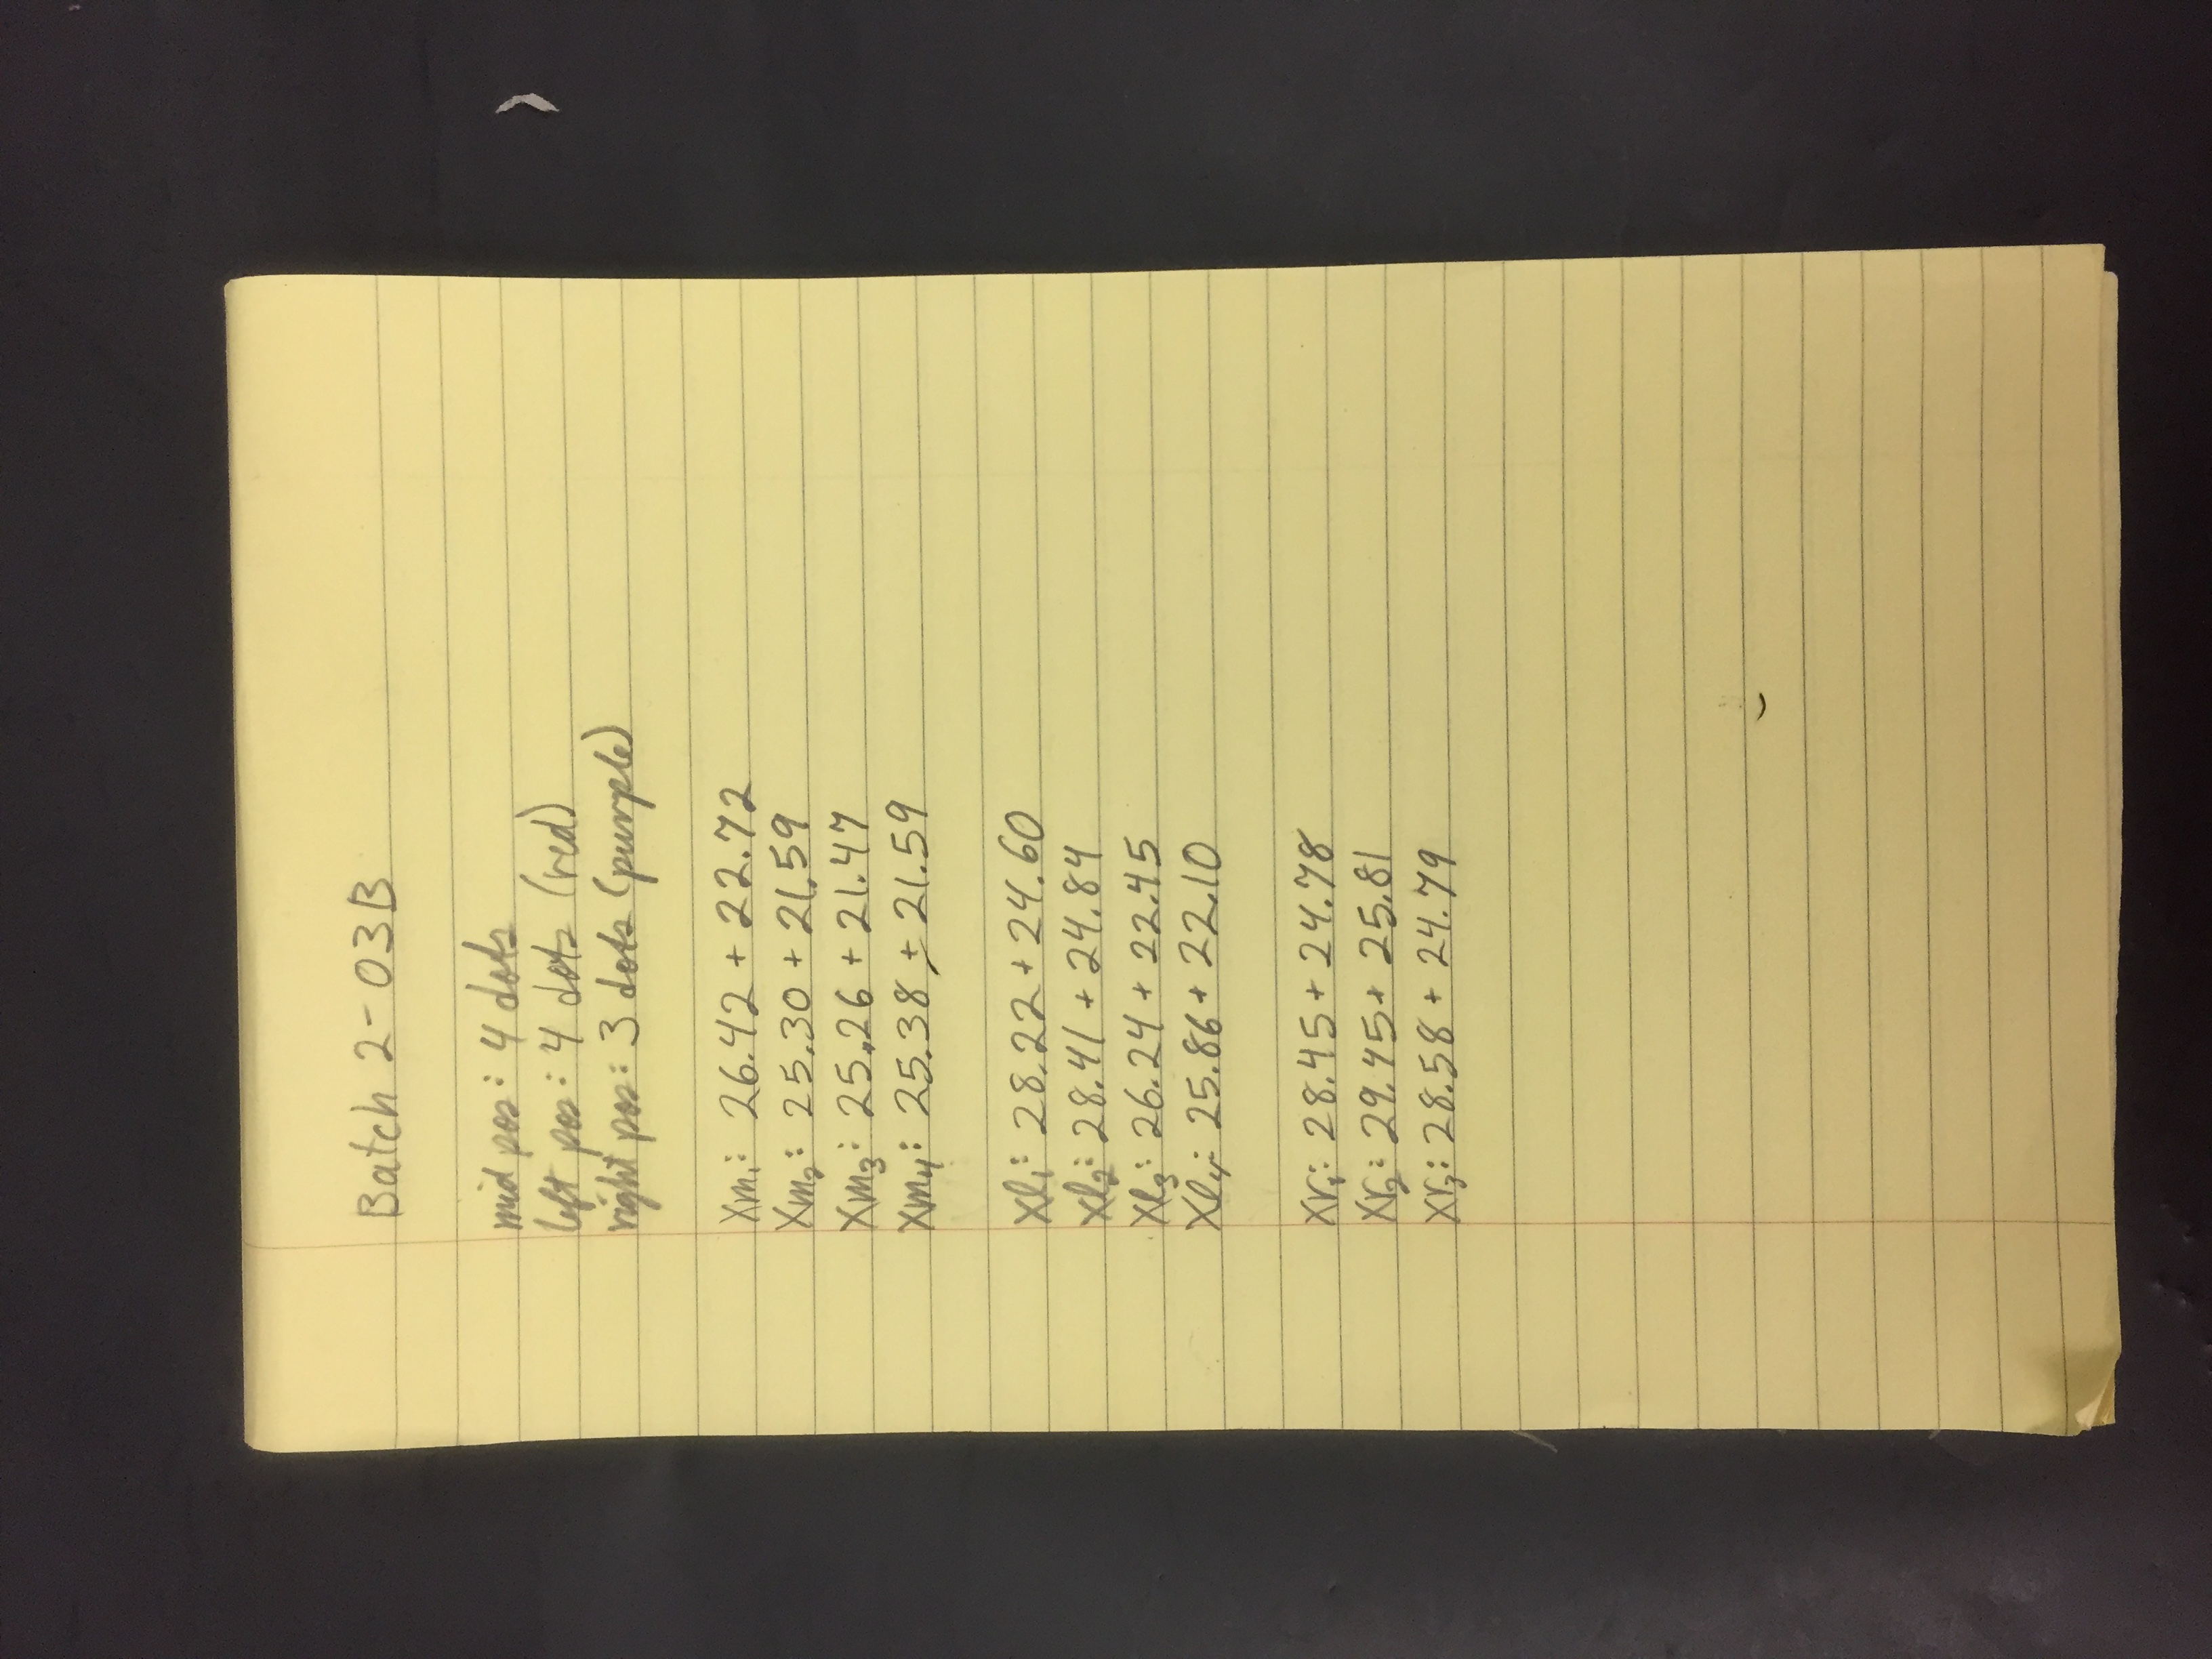 Batch 2-03B
mid pos: 4 dots
left pos: 4 dots (red)
right pos: 3 dots (purple)
Xm1: 26.42 + 22.72
Xm2: 25.30 + 21.59
Xm3: 25.26 + 21.47
Xm4: 25.38 + 21.59
Xl1: 28.22 + 24.60
Xl2: 28.41 + 24.84
Xl3: 26.24 + 22.45
Xl4: 25.86 + 22.10
Xr1: 28.45 + 24.78
Xr2: 29.45 + 25.81
Xr3: 28.58 + 24.79